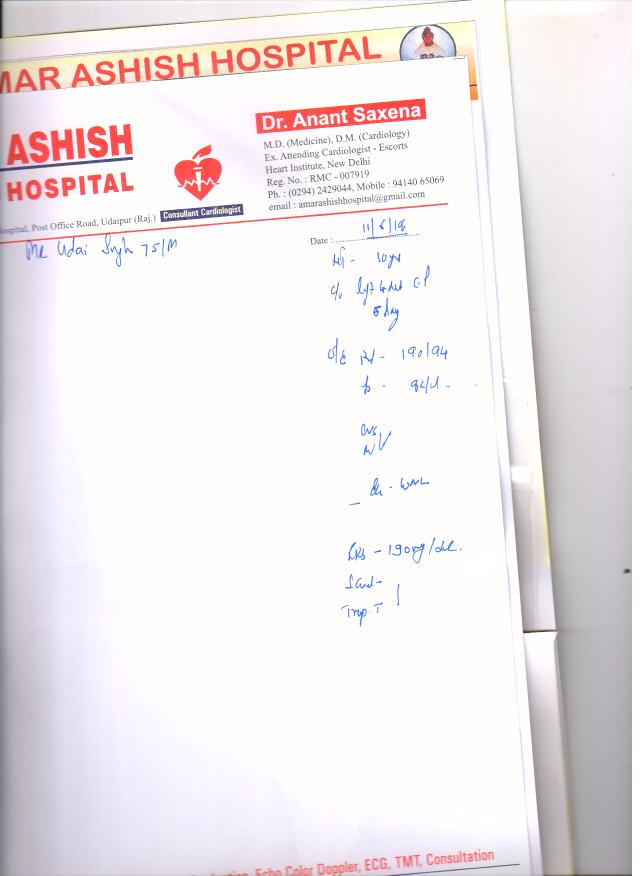 MAR ASHISH HOSPITAL
ASHISH
HOSPITAL
ospital, Post Office Road, Udaipur (Raj.)
Consultant Cardiologist
Dr. Anant Saxena
M.D. (Medicine), D.M. (Cardiology)
Ex. Attending Cardiologist - Escorts
Heart Institute, New Delhi
Reg. No. : RMC - 007919
Ph. : (0294) 2429044, Mobile : 94140 65069
email : amarashishhospital@gmail.com
Mr Udai Singh 75/M
Date :
10 yr
c/o
5 day
o/e 190/94
CVS
- WNL
RBS - 190 mg/dl.
Trop. T
Echo Color Doppler, ECG, TMT, Consultation